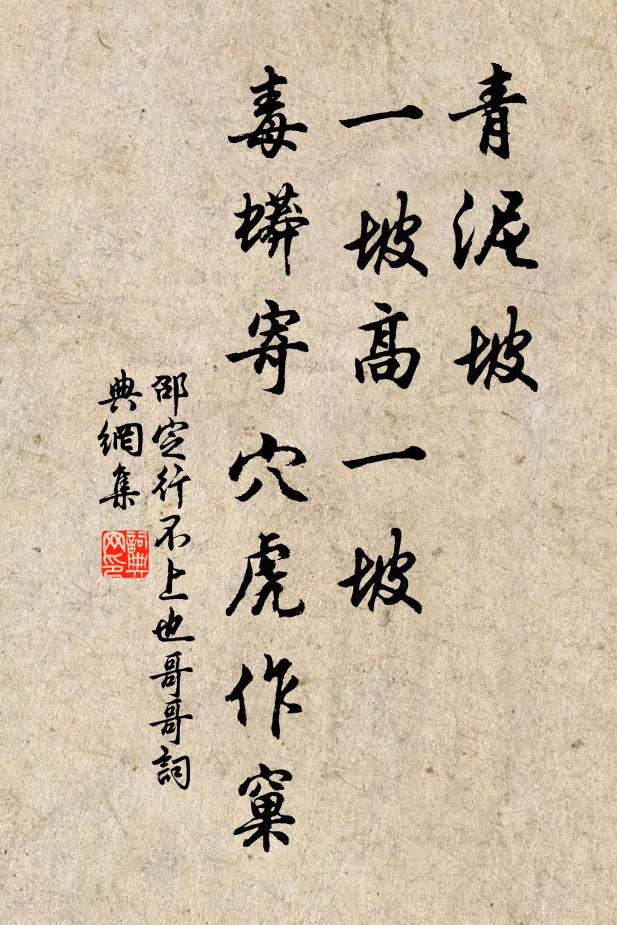 青泥坡
一坡高一坡
毒蟒寄穴虎作窠
邵定行不上也哥哥詞
典網集
詞典网印